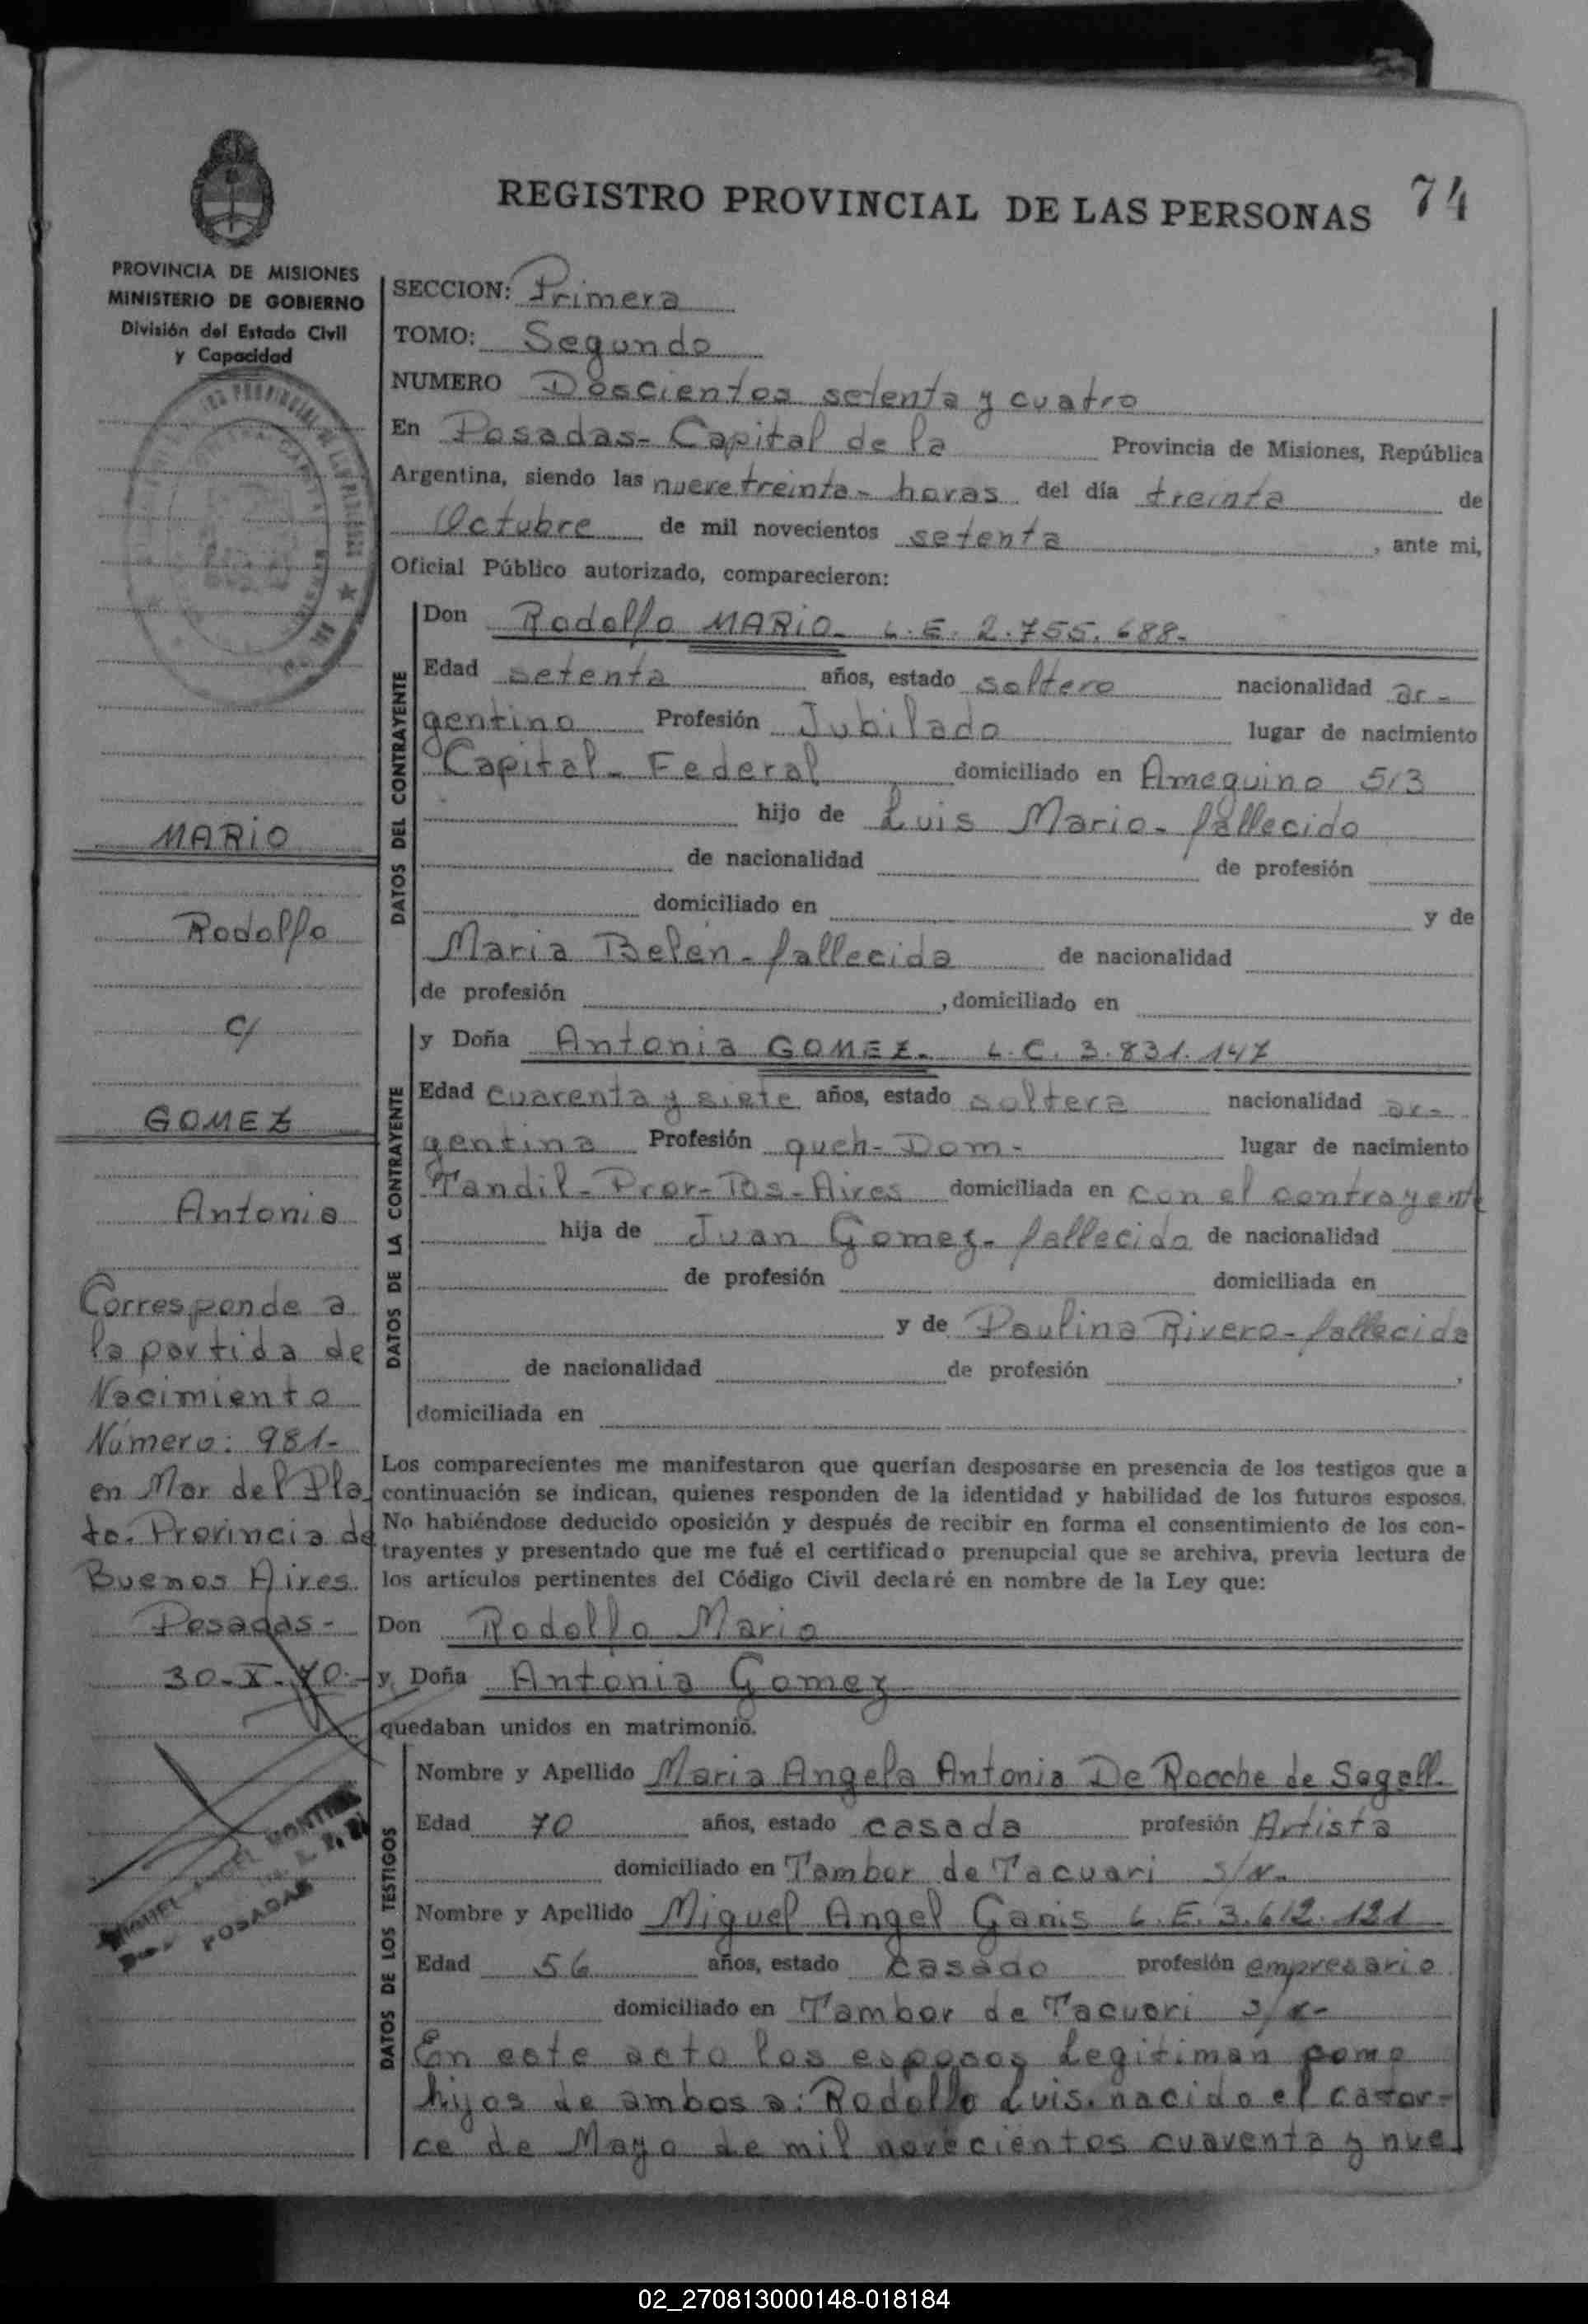 REGISTRO PROVINCIAL DE LAS PERSONAS 74
PROVINCIA DE MISIONES
MINISTERIO DE GOBIERNO
División del Estado Civil
y Capacidad
MARIO
Rodolfo
c/
GOMEZ
Antonia
Corresponde a
la partida de
Nacimiento
Número: 981-
en Mar del Pla
ta. Provincia de
Buenos Aires.
Posadas-
30-X-70.-
MIGUEL ANGEL
POSADAS
SECCION: Primera
TOMO: Segundo
NUMERO Doscientos setenta y cuatro
En Posadas- Capital de la Provincia de Misiones, República
Argentina, siendo las nueve treinta- horas del día treinta de
Octubre de mil novecientos setenta, ante mi,
Oficial Público autorizado, comparecieron:
DATOS DEL CONTRAYENTE
Don Rodolfo MARIO- L.E. 2.755.688-
Edad setenta años, estado soltero nacionalidad ar-
gentino Profesión Jubilado lugar de nacimiento
Capital- Federal domiciliado en Ameguino 513
hijo de Luis Mario- fallecido
de nacionalidad de profesión
domiciliado en y de
Maria Belén- fallecida de nacionalidad
de profesión , domiciliado en
DATOS DE LA CONTRAYENTE
y Doña Antonia GOMEZ- L.C. 3.831.147
Edad cuarenta y siete años, estado soltera nacionalidad ar-
gentina Profesión queh-Dom- lugar de nacimiento
Tandil-Prov-Bs-Aires domiciliada en con el contrayente
hija de Juan Gomez- fallecido de nacionalidad
de profesión domiciliada en
y de Paulina Rivero-fallecida
de nacionalidad de profesión ,
domiciliada en
Los comparecientes me manifestaron que querían desposarse en presencia de los testigos que a
continuación se indican, quienes responden de la identidad y habilidad de los futuros esposos.
No habiéndose deducido oposición y después de recibir en forma el consentimiento de los con-
trayentes y presentado que me fué el certificado prenupcial que se archiva, previa lectura de
los artículos pertinentes del Código Civil declaré en nombre de la Ley que:
Don Rodolfo Mario
y Doña Antonia Gomez
quedaban unidos en matrimonio.
DATOS DE LOS TESTIGOS
Nombre y Apellido Maria Angela Antonia De Rocche de Segall-
Edad 70 años, estado casada profesión Artista
domiciliado en Tambor de Tacuari s/N-
Nombre y Apellido Miguel Angel Ganis L.E. 3.612.121
Edad 56 años, estado casado profesión empresario
domiciliado en Tambor de Tacuari
En este acto los esposos Legitiman como
hijos de ambos a: Rodolfo Luis. nacido el cator-
ce de Mayo de mil novecientos cuarenta y nue
02_270813000148-018184